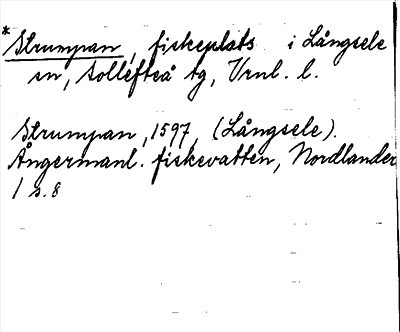 *Strumpan, fiskeplats i Långsele
sn, Sollefteå tg, Vrnl. l.
Strumpan, 1597, (Långsele).
Ångermanl. fiskevatten, Nordlander
1 s. 8